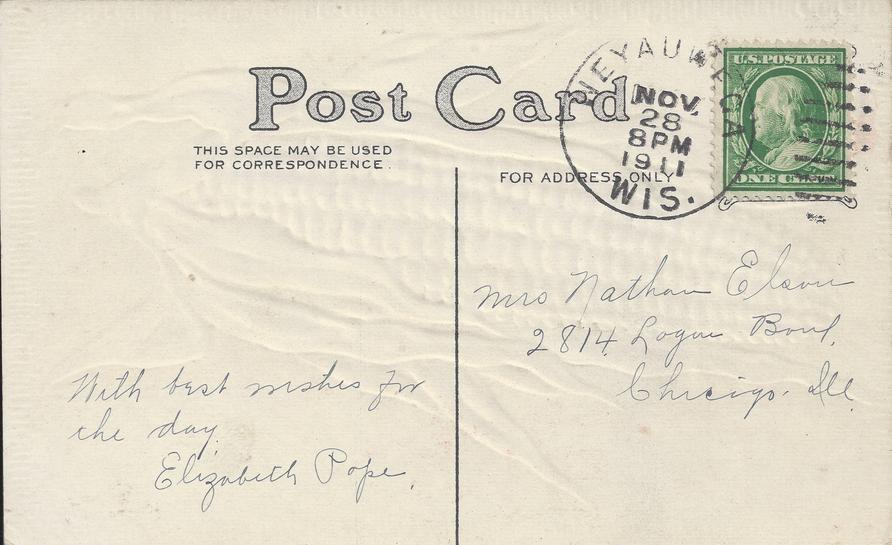 Post Card
THIS SPACE MAY BE USED
FOR CORRESPONDENCE.
FOR ADDRESS ONLY
NOV.
28
8PM
1911
WIS.
U.S. POSTAGE
ONE
Mrs Nathan
2814 Logan Boul.
Chicago. Ill.
With best wishes for
the day.
Elizabeth Pope.